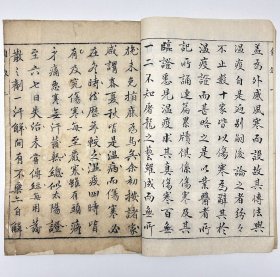 蓋為外感風寒而設故其傳法與
溫疫自是逈別嗣後論之者紛々
不止數十家皆以傷寒為辭其於
溫疫證而甚略之是以業醫者所
記所誦連篇累牘俱係傷寒及其
臨證悉見溫疫求其真傷寒百無
一二不知屠龍之藝雖成而無所
施未免指鹿為馬矣余初按諸家
咸謂春夏秋皆是溫病而傷寒必
在冬時然歷年較之溫疫四時皆
有及究傷寒每以嚴寒
至六七日失治未嘗傳經每用
散之劑一汗解間有不藥亦自解